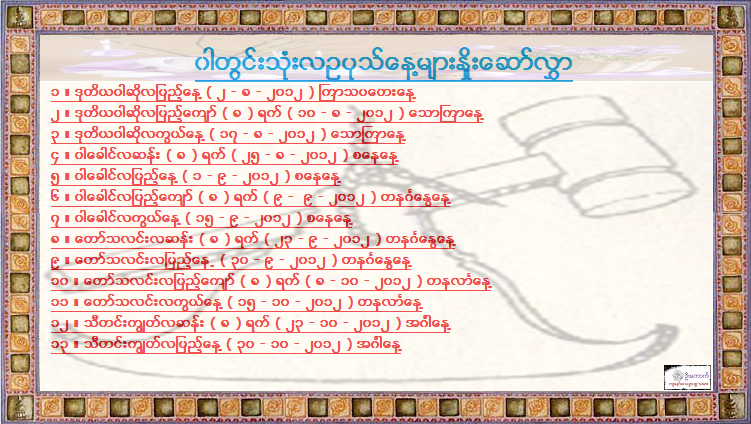 ဝါတွင်းသုံးလဥပုသ်နေ့များနှိုးဆော်လွှာ
၁ ။ ဒုတိယဝါဆိုလပြည့်နေ့ ( ၂ - ၈ - ၂၀၁၂ ) ကြာသပတေးနေ့
၂ ။ ဒုတိယဝါဆိုလပြည့်ကျော် ( ၈ ) ရက် ( ၁၀ - ၈ - ၂၀၁၂ ) သောကြာနေ့
၃ ။ ဒုတိယဝါဆိုလကွယ်နေ့ ( ၁၇ - ၈ - ၂၀၁၂ ) သောကြာနေ့
၄ ။ ဝါခေါင်လဆန်း ( ၈ ) ရက် ( ၂၅ - ၈ - ၂၀၁၂ ) စနေနေ့
၅ ။ ဝါခေါင်လပြည့်နေ့ ( ၁ - ၉ - ၂၀၁၂ ) စနေနေ့
၆ ။ ဝါခေါင်လပြည့်ကျော် ( ၈ ) ရက် ( ၉ - ၉ - ၂၀၁၂ ) တနင်္ဂနွေနေ့
၇ ။ ဝါခေါင်လကွယ်နေ့ ( ၁၅ - ၉ - ၂၀၁၂ ) စနေနေ့
၈ ။ တော်သလင်းလဆန်း ( ၈ ) ရက် ( ၂၃ - ၉ - ၂၀၁၂ ) တနင်္ဂနွေနေ့
၉ ။ တော်သလင်းလပြည့်နေ့ ( ၃၀ - ၉ - ၂၀၁၂ ) တနင်္ဂနွေနေ့
၁၀ ။ တော်သလင်းလပြည့်ကျော် ( ၈ ) ရက် ( ၈ - ၁၀ - ၂၀၁၂ ) တနင်္လာနေ့
၁၁ ။ တော်သလင်းလကွယ်နေ့ ( ၁၅ - ၁၀ - ၂၀၁၂ ) တနင်္လာနေ့
၁၂ ။ သီတင်းကျွတ်လဆန်း ( ၈ ) ရက် ( ၂၃ - ၁၀ - ၂၀၁၂ ) အင်္ဂါနေ့
၁၃ ။ သီတင်းကျွတ်လပြည့်နေ့ ( ၃၀ - ၁၀ - ၂၀၁၂ ) အင်္ဂါနေ့